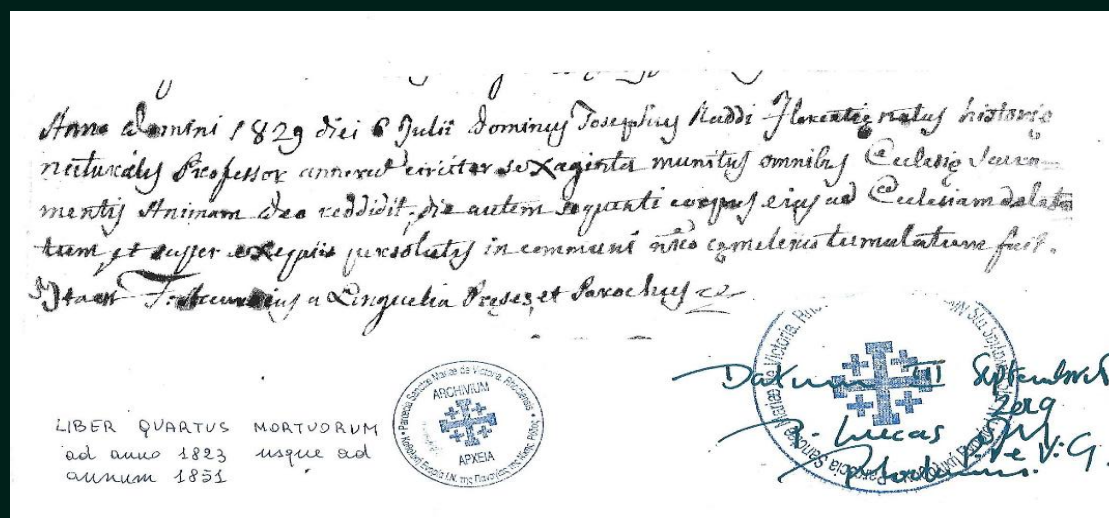 Anno Domini 1829 diei 6 Julii Dominus Josephus Raddi Florentię natus historię
naturalis Professor annorum circiter sexaginta munitus omnibus Ecclesię Sacra-
mentis Animam Deo reddidit, die autem sequenti corpus ejus ad Ecclesiam delatu
tum et super exequiis persolutis in communi nřo cęmeterio tumulatum fuit.
Ita est a Linguelia Pręses et Parochus
LIBER QUARTUS MORTUORUM
ad anno 1823 usque ad
annum 1851
Paroecia Sanctae Mariae de Victoria, Rhodiensis
ARCHIVIUM
ΑΡΧΕΙΑ
Datum III Septembris
2019
Lucas
V.G.